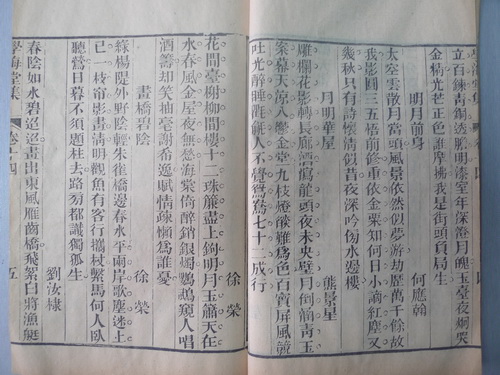 學海堂集 卷十四 四
立百鍊靑銅透膽明漆室年深澄月魄玉臺夜烱哭
金柄光芒正色誰摩拂我是街頭負局生
明月前身 何應翰
太空雲散月當頭風景依然似夢游劫歷萬千餘故
我影圓三五悟前修重依金粟知何日小謫紅塵又
幾秋只有詩懷淸似昔夜深吟傍水邊樓
月明華屋 熊景星
雕欄花影轉長廊酒瀉龍頭夜未央壁月倒涵靑玉
案幕天涼入鬱金堂九枝燈燄難爲色百寶屛風競
吐光醉睡人不覺鴛鴦七十二成行
徐榮
花間臺榭柳間樓十二珠簾盡上鉤明月玉簫天在
水春風金屋夜無愁海棠倚醉銷銀燭鸚鵡窺人唱
酒籌却笑抽毫謝希逸賦情疎懶爲誰憂
畫橋碧陰 徐榮
綠楊隄外野陰輕朱雀橋邊春水平兩岸歌塵迷上
已一枝帘影畫淸明觀魚有客行攜杖繫馬何人臥
聽鶯日暮不須題柱去路旁都識獨孤生
劉汝棣
春陰如水碧迢迢畫出東風雁齒橋飛絮白將漁艇
學海堂集 卷十四 五